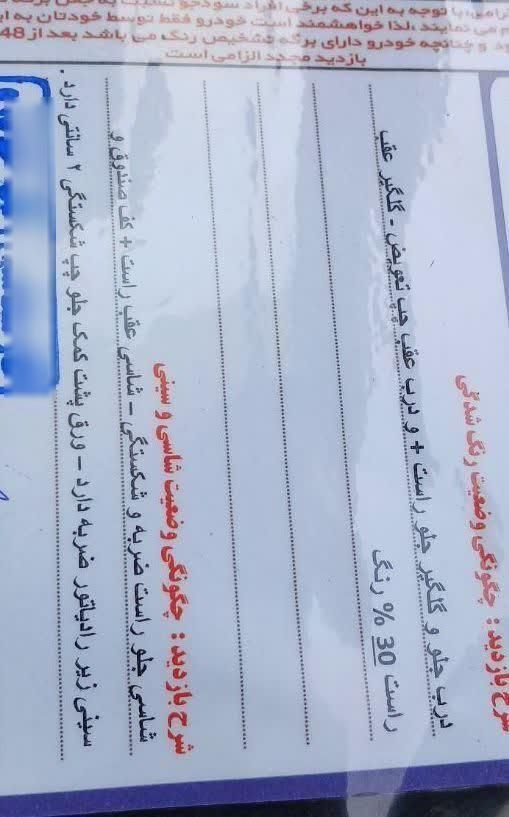 برخی افراد سودجو
می نمایند ،لذا خواهشمند است خودرو فقط توسط خودتان به
و چنانچه خودرو دارای برگه تشخیص رنگ می باشد بعد از 48
بازدید مجدد الزامی است
شرح بازدید : چگونگی وضعیت رنگ شدگی
درب جلو و گلگیر جلو راست + و درب عقب چپ تعویض - گلگیر عقب
راست 30 % رنگ
شرح بازدید : چگونگی وضعیت شاسی و سینی
شاسی جلو راست ضربه و شکستگی – شاسی عقب راست + کف صندوق و
سینی زیر رادیاتور ضربه دارد – ورق پشت کمک جلو چپ شکستگی ۲ سانتی دارد .